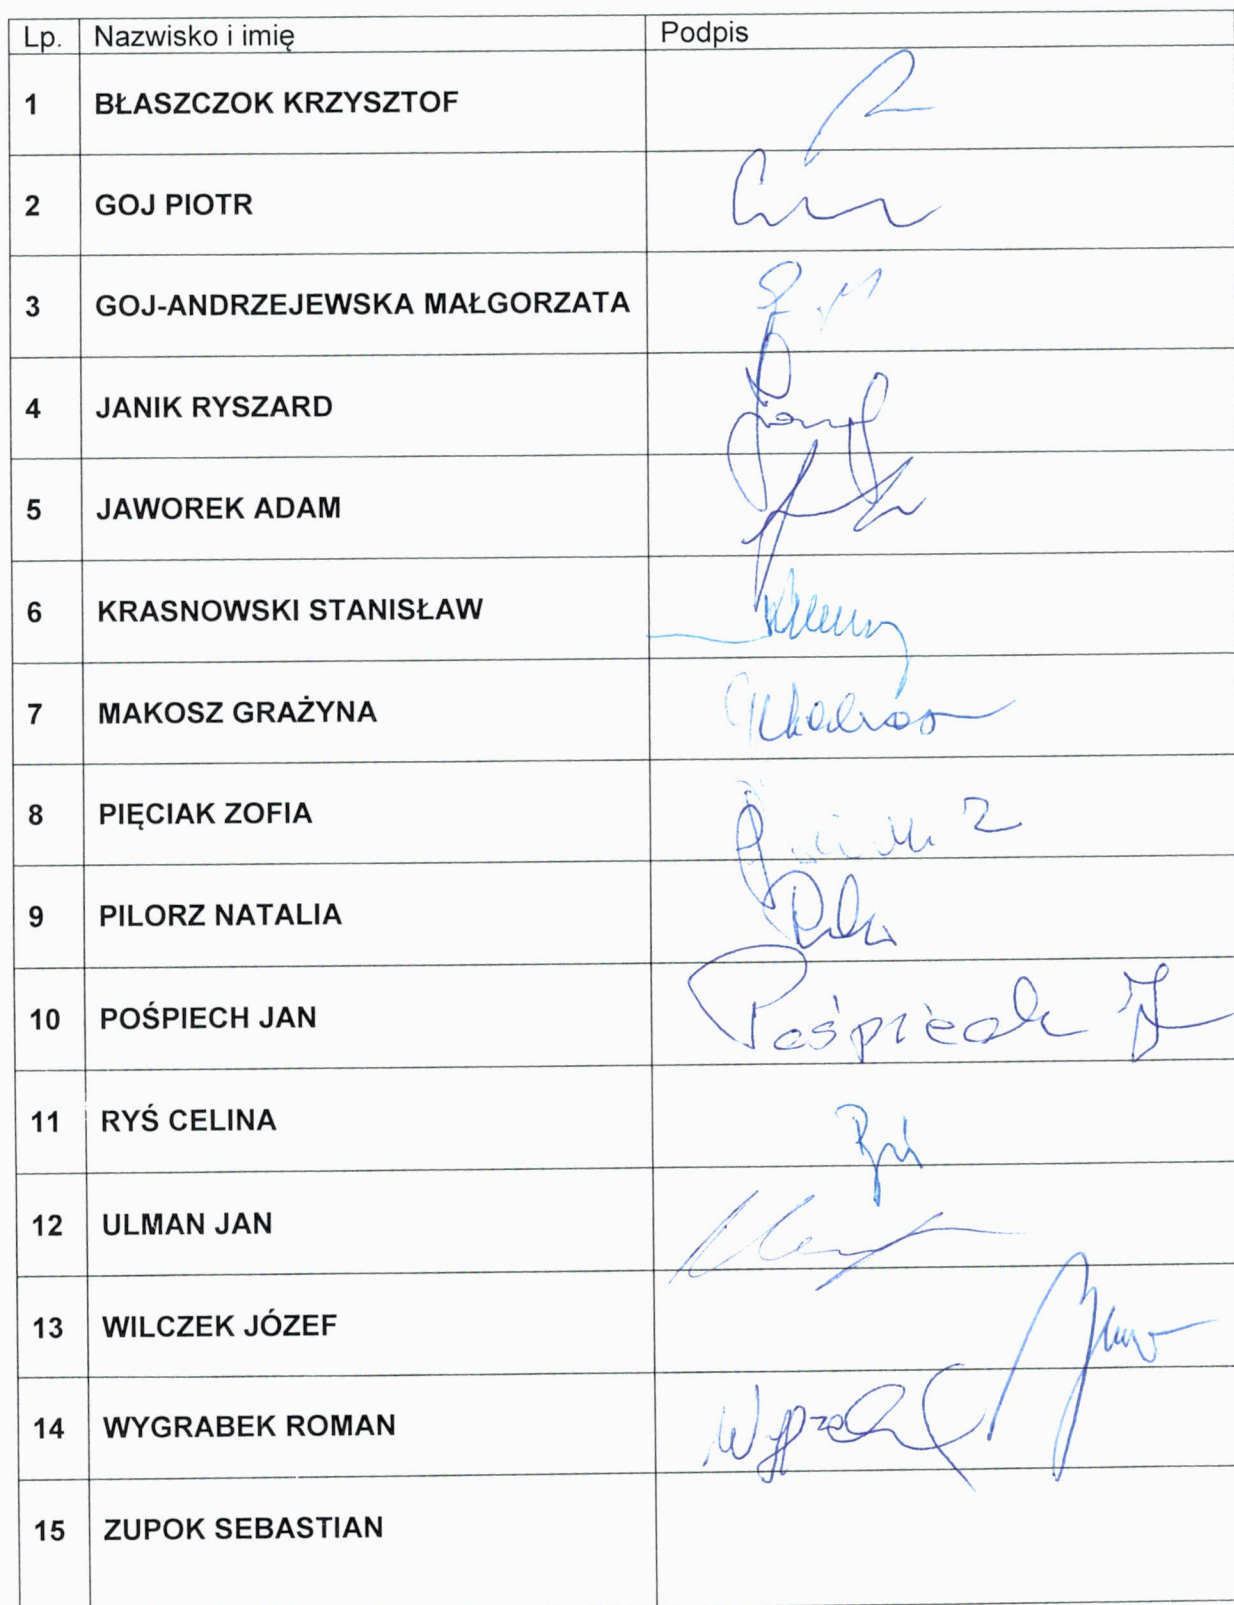 Lp. Nazwisko i imię Podpis
1 BŁASZCZOK KRZYSZTOF
2 GOJ PIOTR
3 GOJ-ANDRZEJEWSKA MAŁGORZATA
4 JANIK RYSZARD
5 JAWOREK ADAM
6 KRASNOWSKI STANISŁAW
7 MAKOSZ GRAŻYNA
8 PIĘCIAK ZOFIA
9 PILORZ NATALIA
10 POŚPIECH JAN Pośpiech J
11 RYŚ CELINA Ryś
12 ULMAN JAN
13 WILCZEK JÓZEF
14 WYGRABEK ROMAN
15 ZUPOK SEBASTIAN